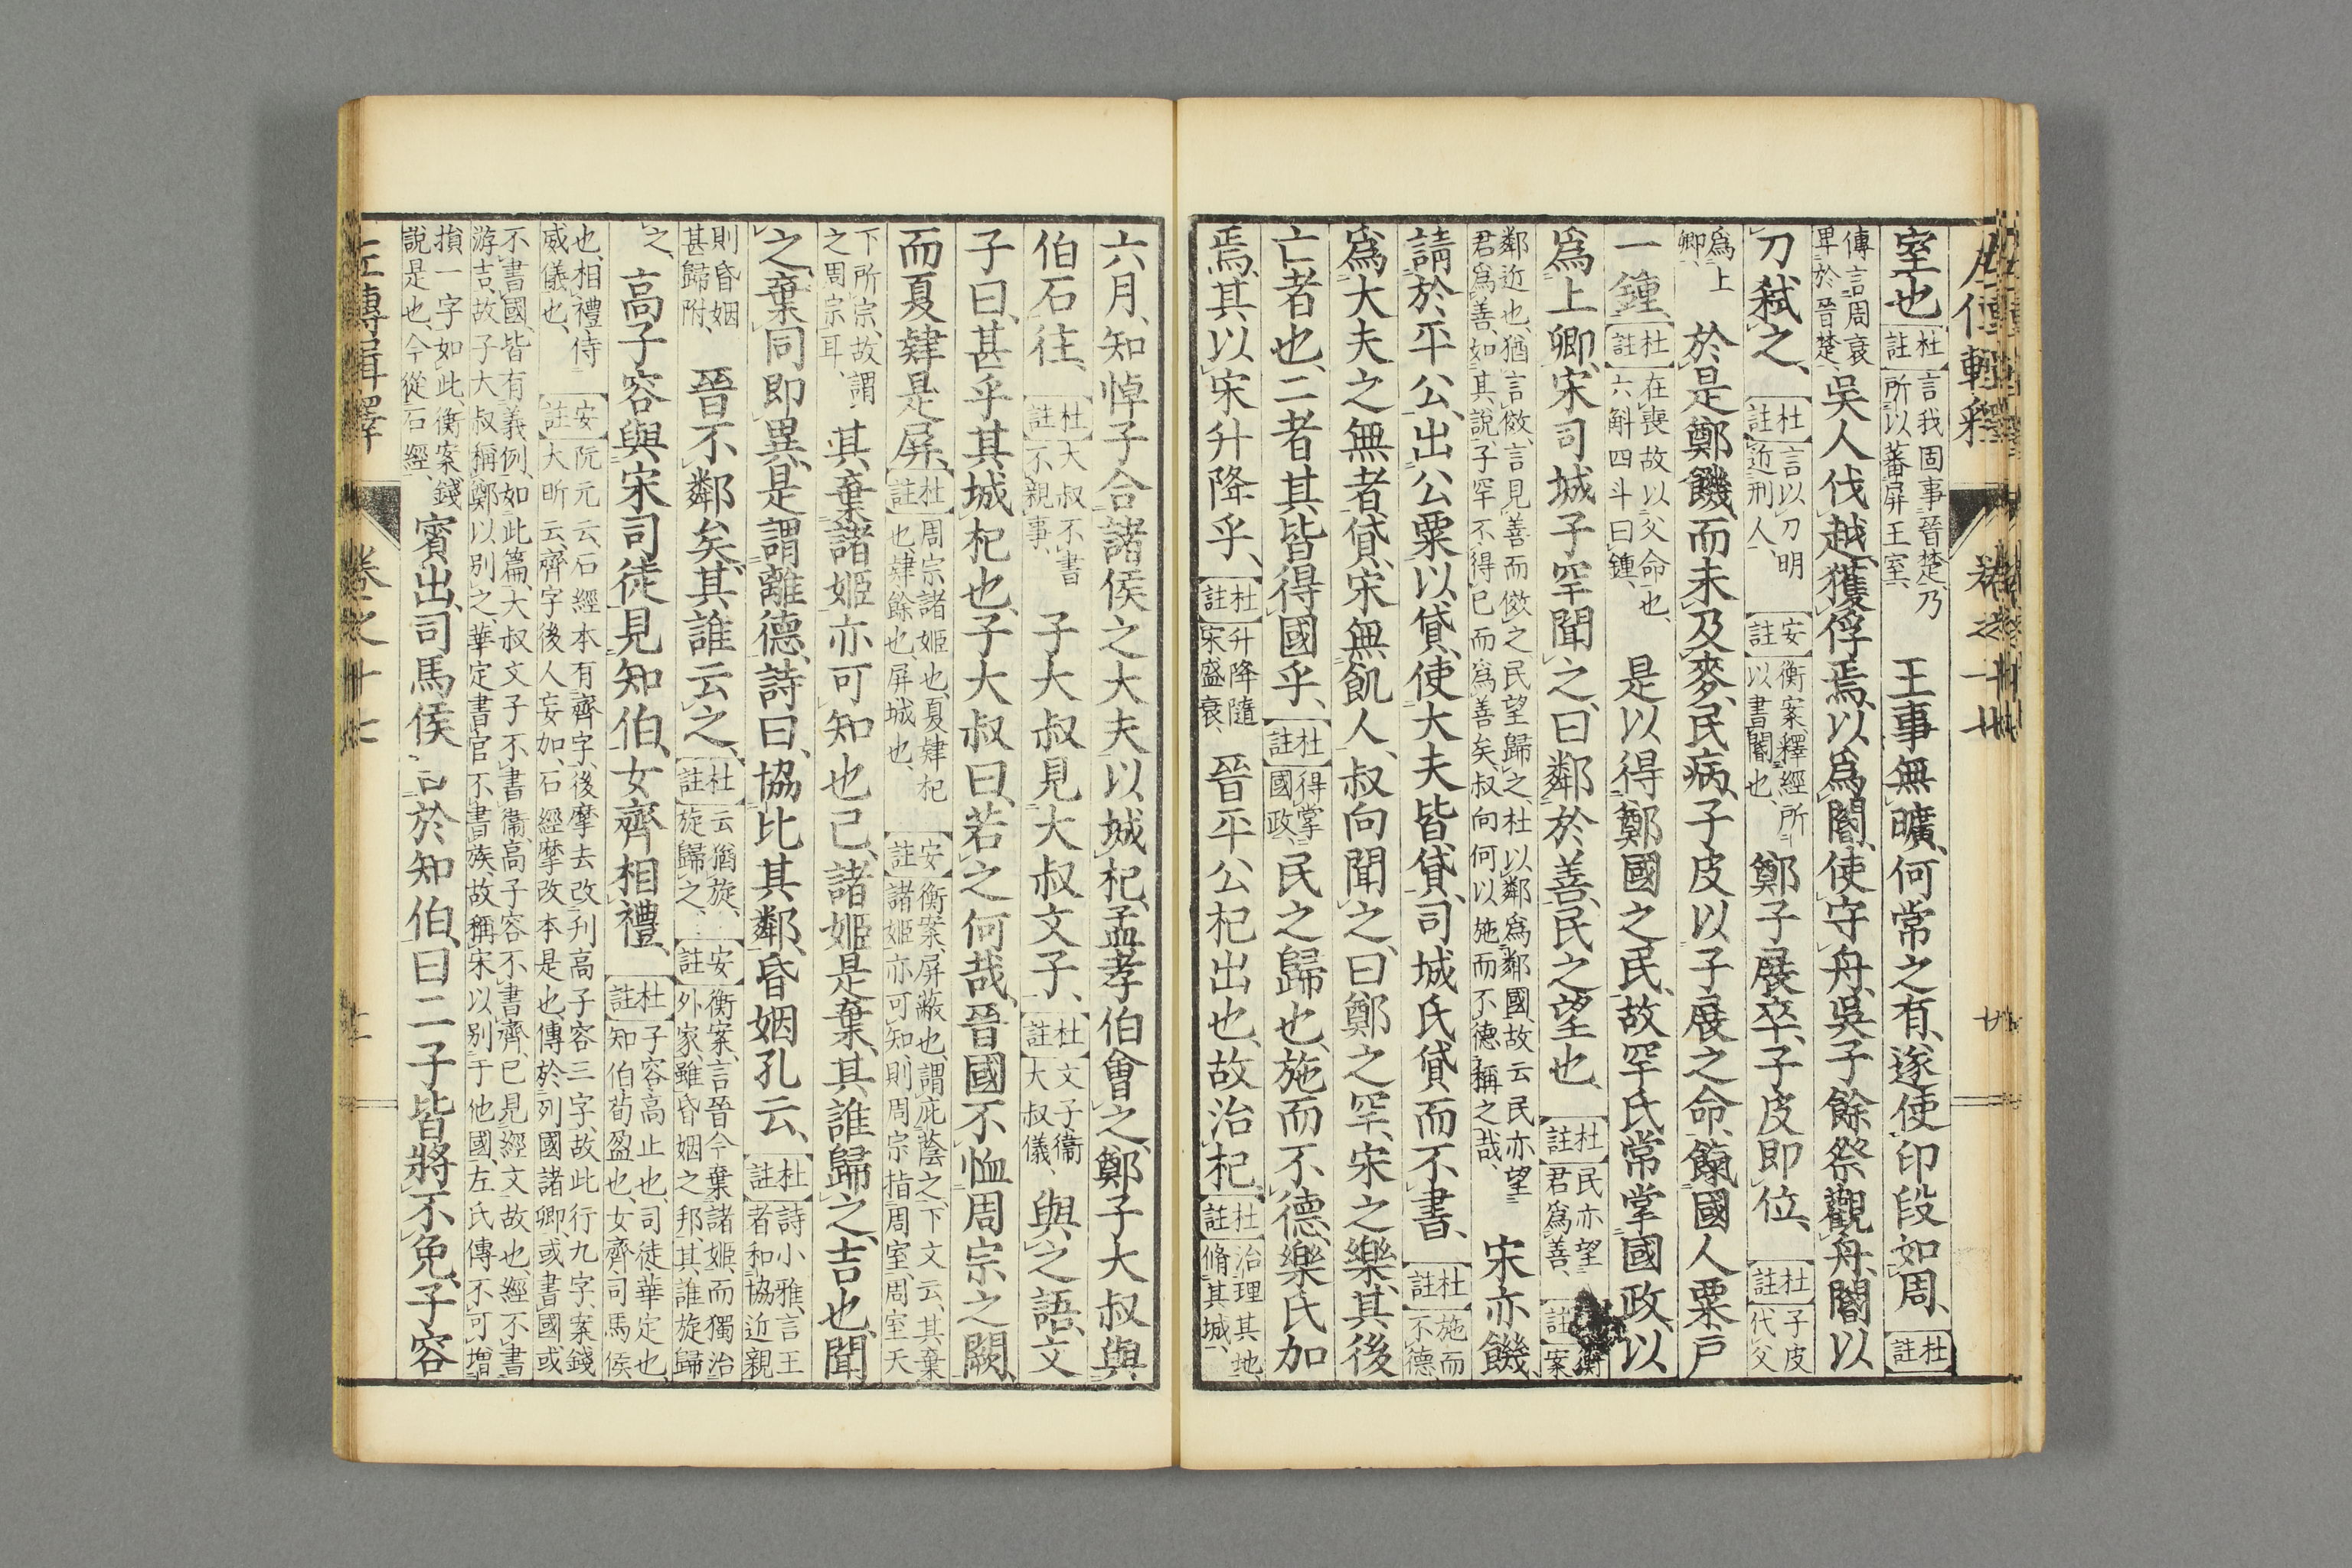 室也、杜註言我固事晉楚、乃所以蕃屏王室、王事無曠、何常之有、遂使印段如周、杜註
傳言周衰卑於晉楚、吳人伐越、獲俘焉、以爲閽、使守舟、吳子餘祭觀舟、閽以
刀弒之、杜註言以刀明近刑人、安註衡案、釋經所以書閽也、鄭子展卒、子皮即位、杜註子皮代父
爲上卿、於是鄭饑、而未及麥、民病、子皮以子展之命、餼國人粟、戶
一鍾、杜註在喪故以父命也、六斛四斗曰鍾、是以得鄭國之民、故罕氏常掌國政、以
爲上卿、宋司城子罕聞之、曰鄰於善、民之望也、杜註民亦望君爲善、註衡案
鄰近也、猶言傚、言見善而傚之、民望歸之、杜以鄰爲鄰國、故云民亦望君爲善、如其說、子罕不得已而爲善矣、叔向何以施而不德稱之哉、宋亦饑、
請於平公、出公粟以貸、使大夫皆貸、司城氏貸而不書、杜註施而不德
爲大夫之無者貸、宋無飢人、叔向聞之、曰鄭之罕、宋之樂、其後
亡者也、二者其皆得國乎、杜註得掌國政民之歸也、施而不德、樂氏加
焉、其以宋升降乎、杜註升降隨宋盛衰、晉平公杞出也、故治杞、杜註治理其地脩其城、
六月、知悼子合諸侯之大夫以城杞、孟孝伯會之、鄭子大叔與
伯石往、杜註大叔不書不親事、子大叔見大叔文子、杜註文子衞大叔儀、與之語、文
子曰、甚乎其城杞也、子大叔曰、若之何哉、晉國不恤周宗之闕、
而夏肄是屏、杜註周宗諸姬也、夏肄杞也、肄餘也、屏城也、安註衡案、屏蔽也、謂庇蔭之、下文云、其棄諸姬亦可知、則周宗指周室、周室天
下所宗、故謂之周宗耳、其棄諸姬、亦可知也已、諸姬是棄、其誰歸之、吉也聞
之、棄同即異、是謂離德、詩曰、協比其鄰、昏姻孔云、杜註詩小雅、言王者和協近親
則昏姻甚歸附、晉不鄰矣、其誰云之、杜註云猶旋、旋歸之、安註衡案、言晉今棄諸姬、而獨治外家、雖昏姻之邦、其誰旋歸
之、高子容與宋司徒見知伯、女齊相禮、杜註子容高止也、司徒華定也、知伯荀盈也、女齊、司馬侯
也、相禮侍威儀也、安註阮元云、石經本有齊字、後摩去改刋高子容三字、故此行九字、案錢大昕云、齊字後人妄如、石經摩改本是也、傳於列國諸卿、或書國或
不書國、皆有義例、如此篇、大叔文子不書衞、高子容不書齊、已見經文故也、經不書游吉、故子大叔稱鄭以別之、華定書官不書族、故稱宋以別于他國、左氏傳不可增
損一字如此、衡案、錢說是也、今從石經、賓出、司馬侯言於知伯、曰二子皆將不免、子容